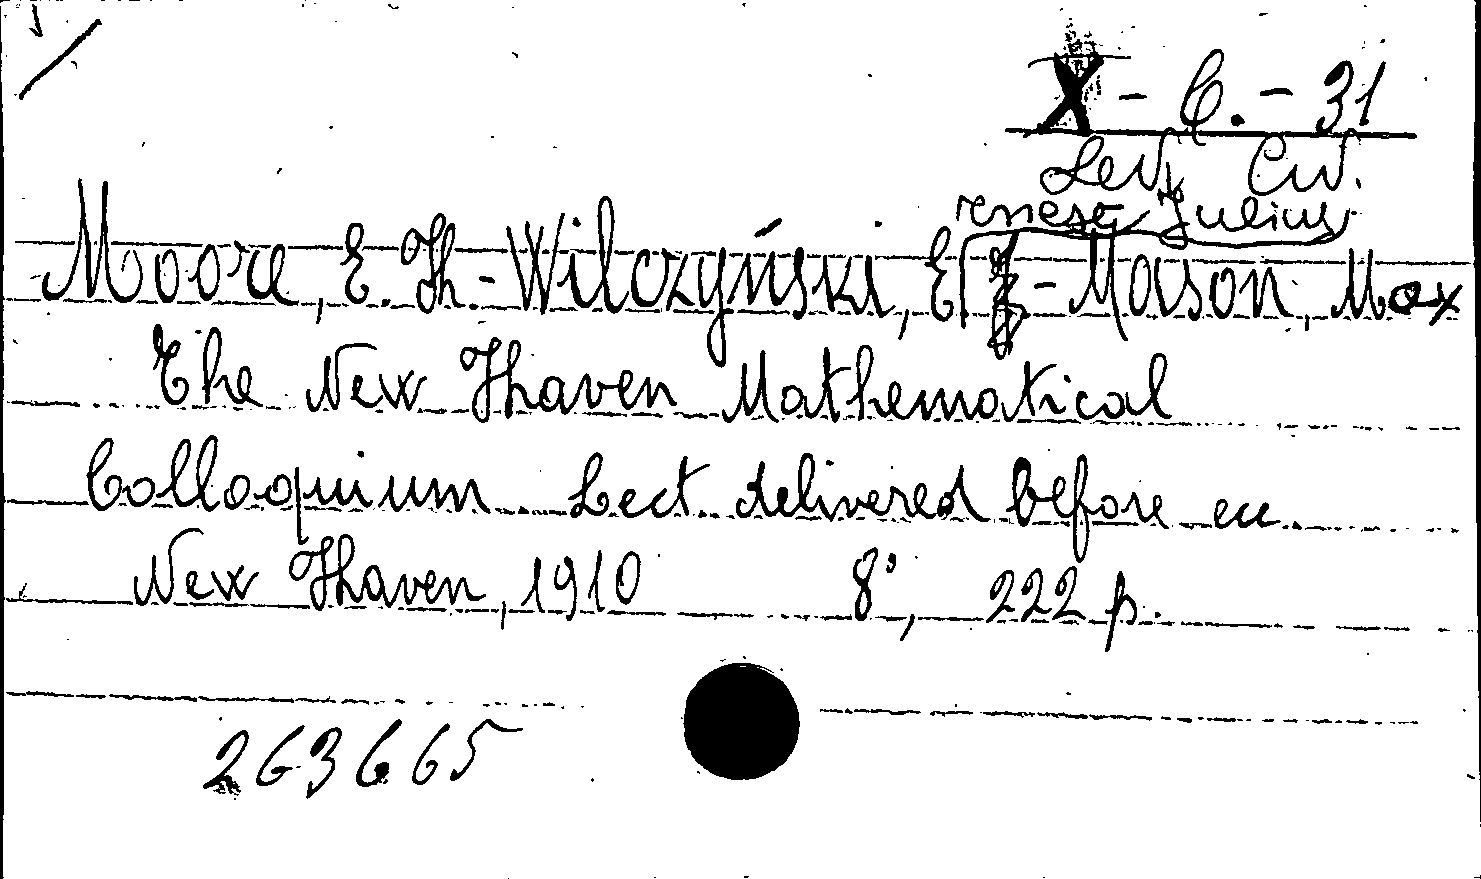 X - C. - 31
Lev. Civ.
rnest Julius
Moore, E. H. - Wilczyński, E - Mason, Max
The New Haven Mathematical
Colloquium Lect. delivered before
New Haven, 1910 8°, 222 p.
263665